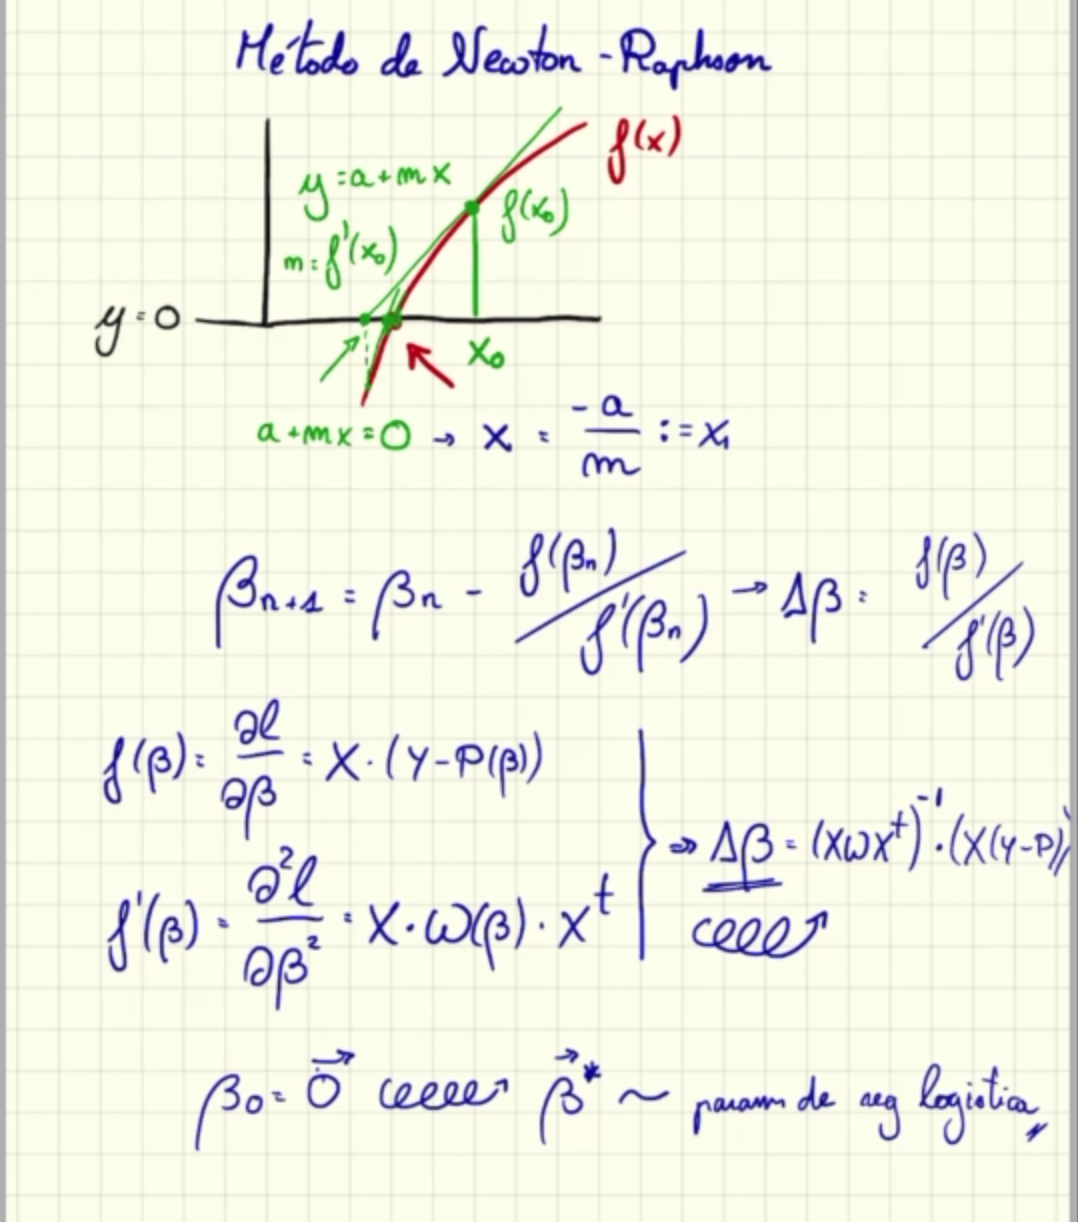 Método de Newton-Raphson
f(x)
y=a+mx
f(x₀)
m=f'(x₀)
y=0
x₀
a+mx=0 → x = -a/m := x₁
βₙ₊₁ = βₙ - f(βₙ)/f'(βₙ) → Δβ = f(β)/f'(β)
f(β) = ∂l/∂β = X·(Y-P(β))
f'(β) = ∂²l/∂β² = X·W(β)·Xᵗ
⇒ Δβ = (XWXᵗ)⁻¹·(X(Y-P))
β₀ = 0⃗ β⃗* ~ param de reg logistica